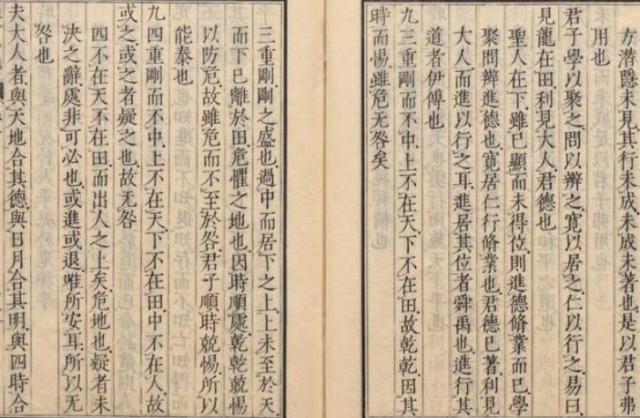 方潛隱未見其行未成未成未著也是以君子弗
用也
君子學以聚之問以辨之寬以居之仁以行之易曰
見龍在田利見大人君德也
聖人在下雖已顯而未得位則進德脩業而已學
聚問辨進德也寬居仁行脩業也君德已著利見
大人而進以行之耳進居其位者舜禹也進行其
道者伊傅也
九三重剛而不中上不在天下不在田故乾乾因其
時而惕雖危无咎矣
三重剛剛之盛也過中而居下之上上未至於天
而下已離於田危懼之地也因時順處乾乾兢惕
以防危故雖危而不至於咎君子順時兢惕所以
能泰也
九四重剛而不中上不在天下不在田中不在人故
或之或之者疑之也故无咎
四不在天不在田而出人之上矣危地也疑者未
決之辭處非可必也或進或退唯所安耳所以无
咎也
夫大人者與天地合其德與日月合其明與四時合